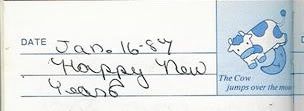 DATE Jan. 16-87
Happy New
Years
The Cow
jumps over the moo